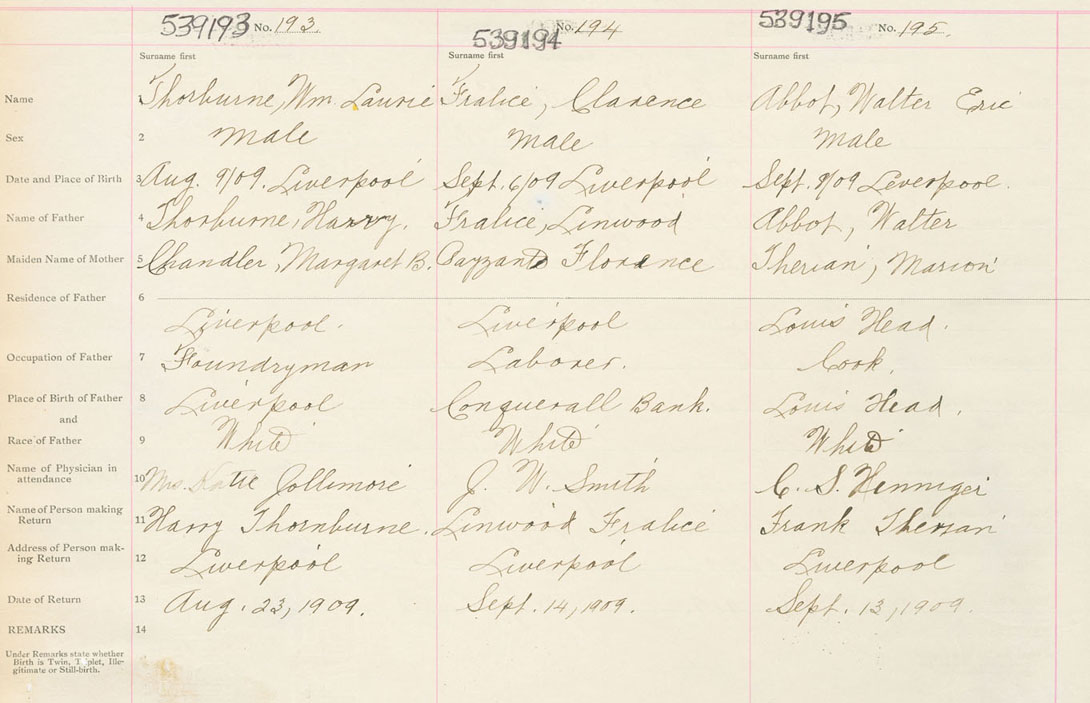 539193 No. 193. 539194 No. 194 539195 No. 195.
Surname first Surname first Surname first
Name 1 Thorburne, Wm. Laurie Fralice, Clarence Abbot, Walter Eric
Sex 2 Male Male Male
Date and Place of Birth 3 Aug. 9/09. Liverpool Sept. 6/09 Liverpool Sept. 9/09 Leverpool.
Name of Father 4 Thorburne, Harry. Fralice, Linwood Abbot, Walter
Maiden Name of Mother 5 Chandler, Margaret B. Payzant Florence Therian, Marion
Residence of Father 6
Liverpool. Liverpool Louis Head.
Occupation of Father 7 Foundryman Laborer. Cook.
Place of Birth of Father 8 Liverpool Conquerall Bank. Louis Head.
and
Race of Father 9 White White White
Name of Physician in
attendance 10 Mrs. Katie Jollimore J. W. Smith C. S. Henniger
Name of Person making
Return 11 Harry Thornburne. Linwood Fralice Frank Therian
Address of Person mak-
ing Return 12 Liverpool Liverpool Liverpool
Date of Return 13 Aug. 23, 1909. Sept. 14, 1909. Sept. 13, 1909.
REMARKS 14
Under Remarks state whether
Birth is Twin, Triplet, Ille-
gitimate or Still-birth.